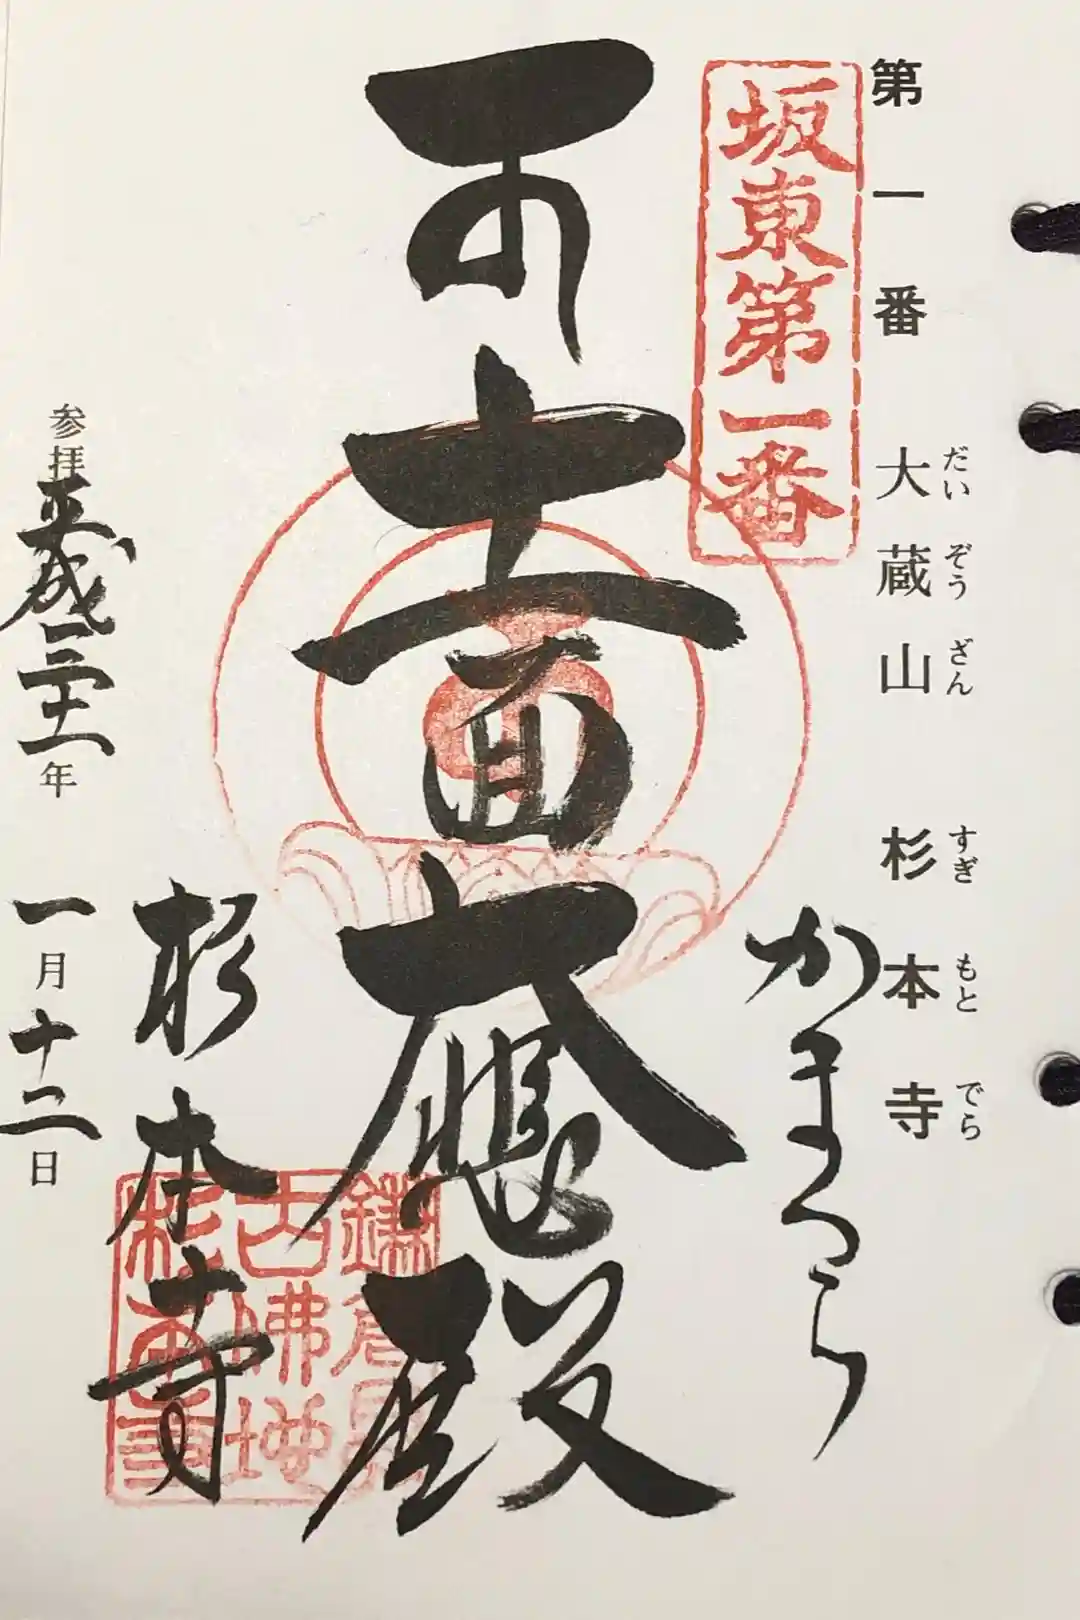 第一番 大蔵山 杉本寺
だいぞうざん すぎもとでら
坂東第一番
かまくら
十一面大悲殿
杉本寺
鎌倉最
古佛地
杉本寺
参拝 平成三十一年 一月十二日